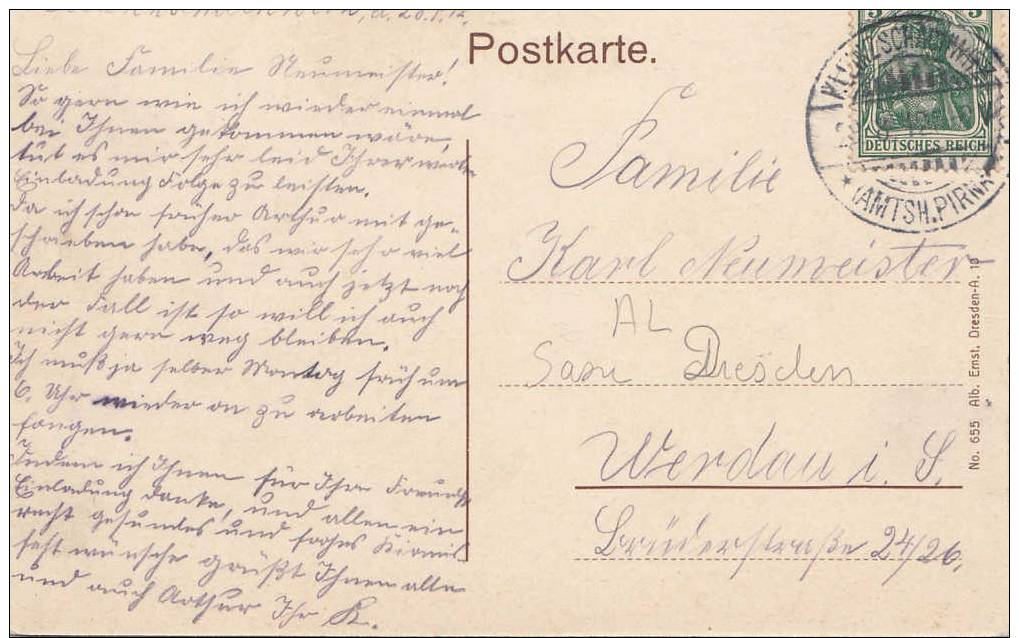 d. 28.1.12.
Liebe Familie Neumeister!
So gern wie ich wieder einmal
bei Ihnen gekommen wäre,
tut es mir sehr leid Ihrer werten
Einladung Folge zu leisten.
Da ich schon früher Arthur mit ge-
schrieben habe, das wir sehr viel
Arbeit haben und auch jetzt noch
der Fall ist so will ich auch
nicht gern weg bleiben.
Ich muß ja selber Montag früh um
6. Uhr wieder an zu arbeiten
fangen.
Indem ich Ihnen für Ihre Freundl.
Einladung danke, und allen ein
recht gesundes und frohes Kirmes
fest wünsche grüßt Ihnen alle
und auch Arthur Ihr K.
Postkarte.
DEUTSCHES REICH
(AMTSH. PIRNA)
Familie
Karl Neumeister
AL
Dresden
Werdau i. S.
Brüderstraße 24/26.
No. 655 Alb. Ernst, Dresden-A. 10